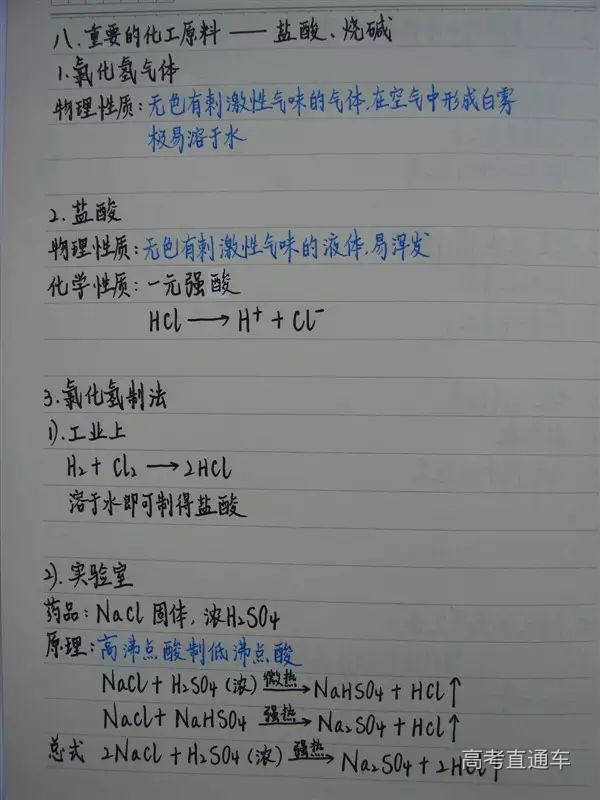 八.重要的化工原料——盐酸、烧碱
1.氯化氢气体
物理性质:无色有刺激性气味的气体,在空气中形成白雾
极易溶于水
2.盐酸
物理性质:无色有刺激性气味的液体,易挥发
化学性质:一元强酸
HCl⟶H⁺+Cl⁻
3.氯化氢制法
1).工业上
H₂+Cl₂⟶2HCl
溶于水即可制得盐酸
2).实验室
药品:NaCl固体,浓H₂SO₄
原理:高沸点酸制低沸点酸
NaCl+H₂SO₄(浓) 微热⟶NaHSO₄+HCl↑
NaCl+NaHSO₄ 强热⟶Na₂SO₄+HCl↑
总式 2NaCl+H₂SO₄(浓) 强热⟶Na₂SO₄+2HCl↑
高考直通车